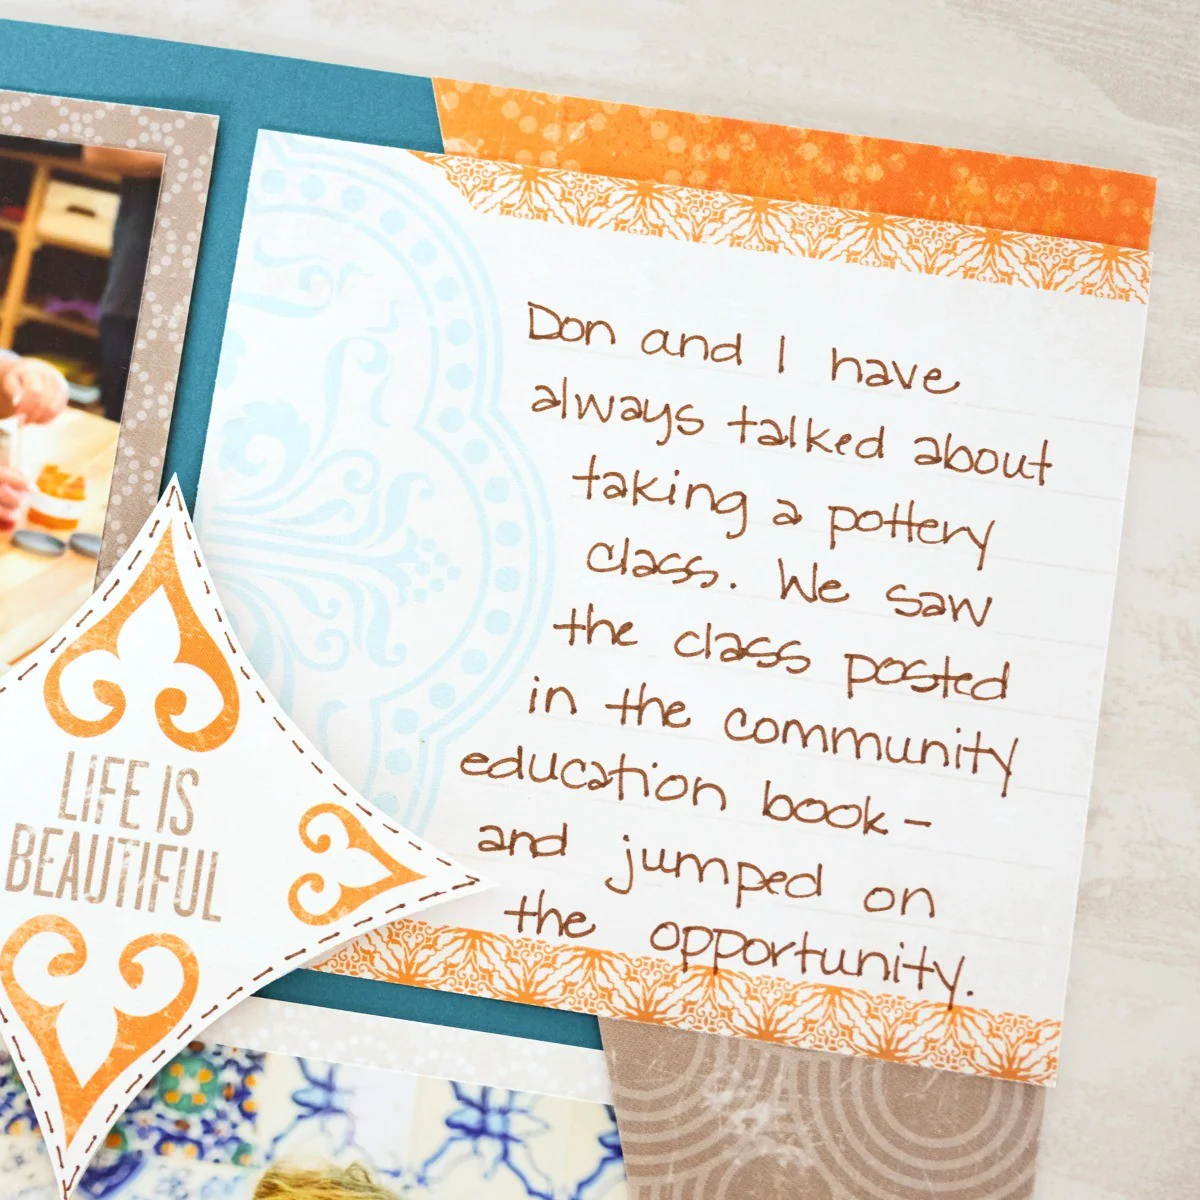 Don and I have
always talked about
taking a pottery
class. We saw
the class posted
in the community
education book-
and jumped on
the opportunity.
LIFE IS
BEAUTIFUL